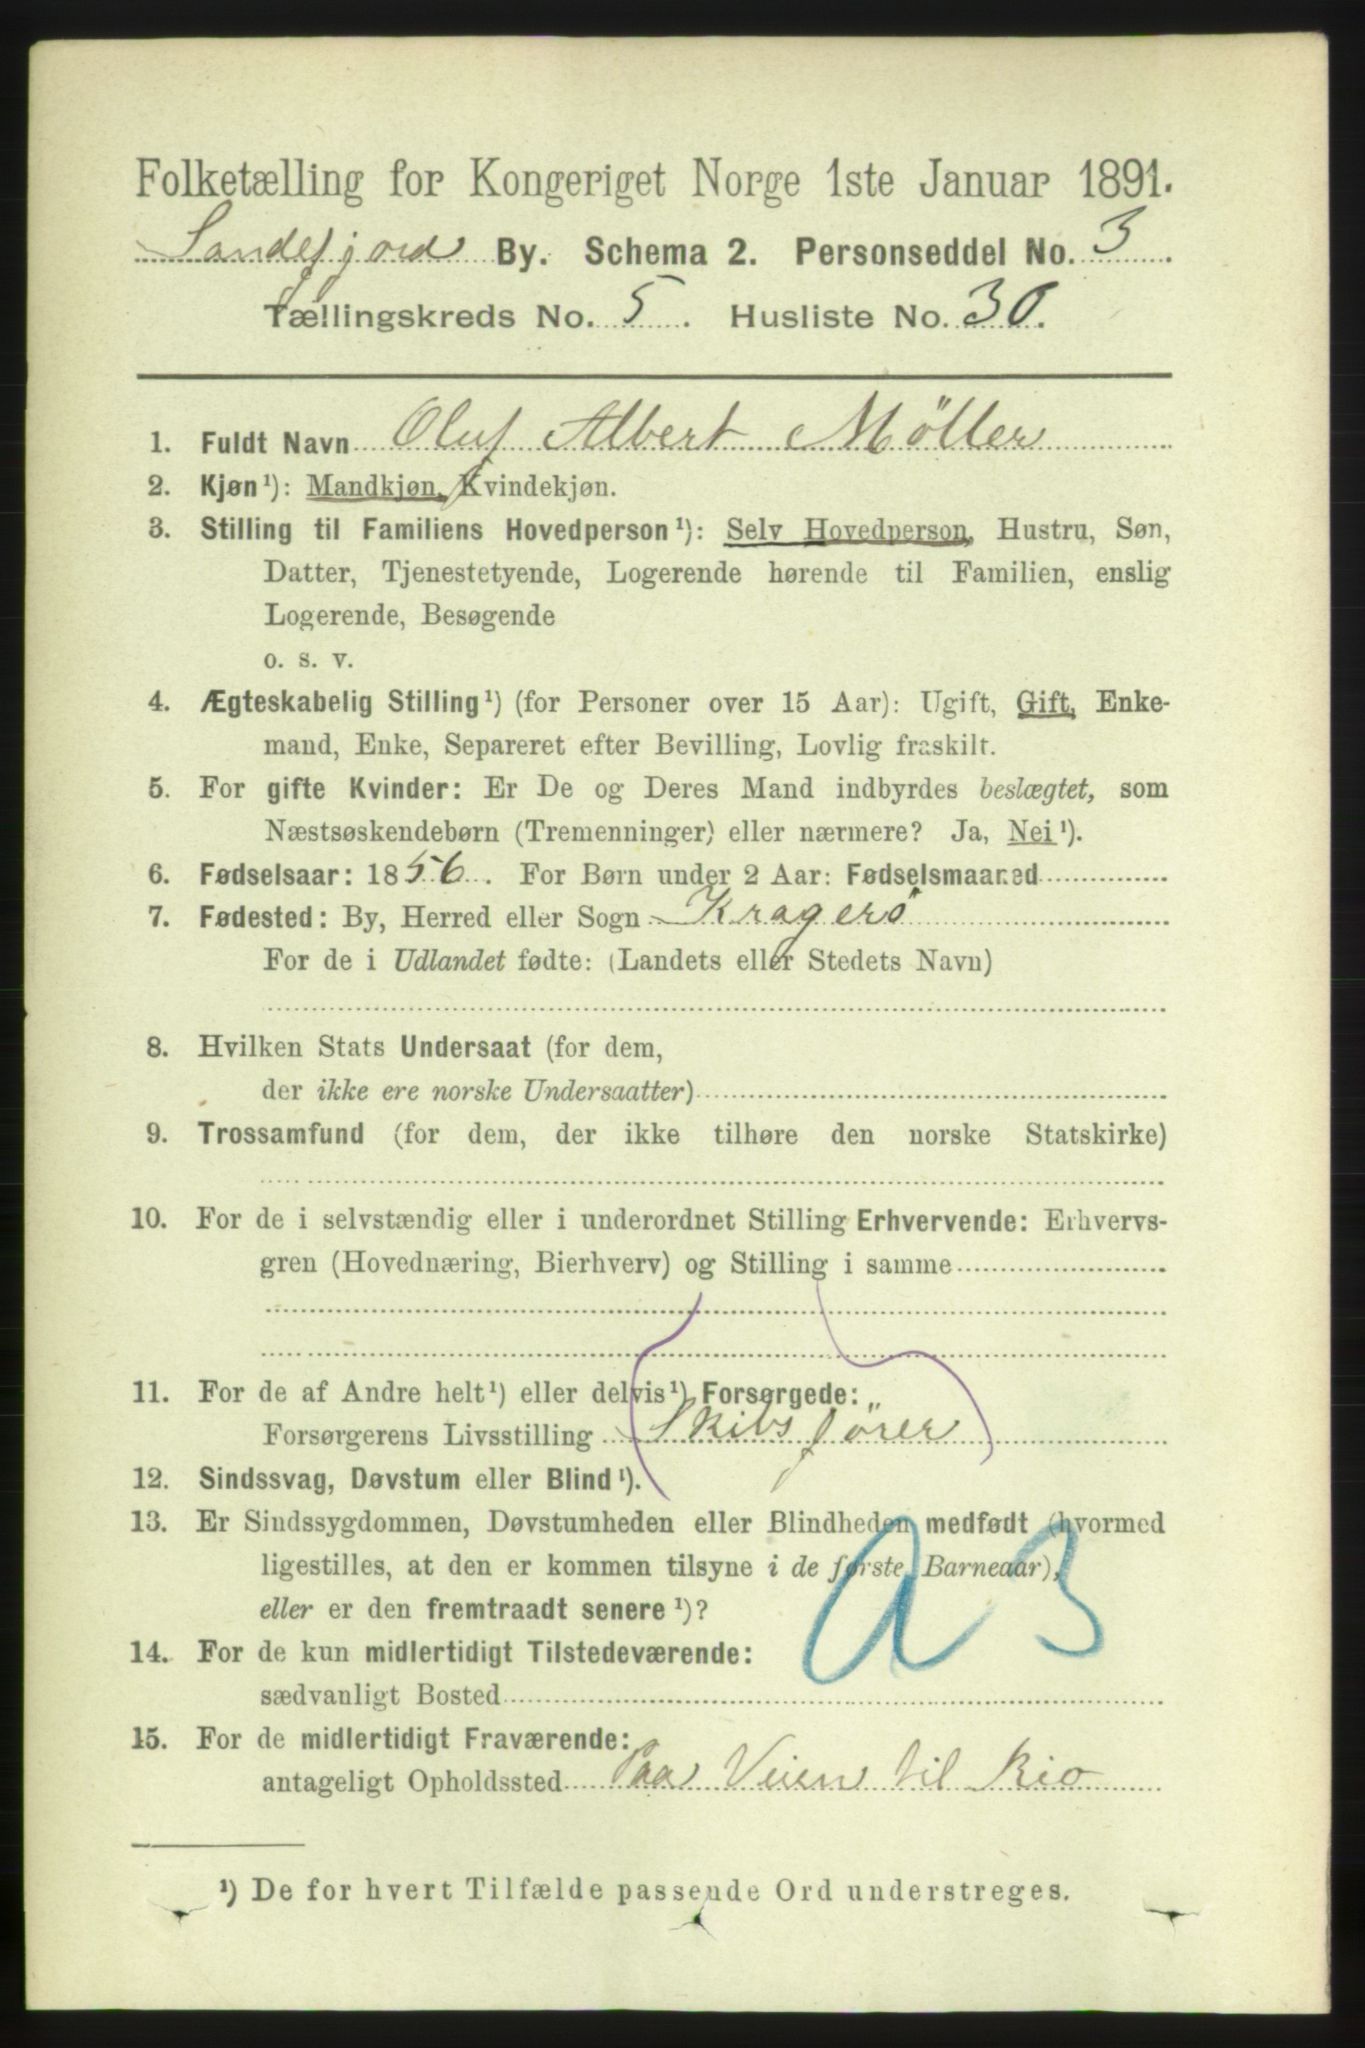 Folketælling for Kongeriget Norge 1ste Januar 1891.
Sandefjord By. Schema 2. Personseddel No. 3.
Tællingskreds No. 5. Husliste No. 30.
1. Fuldt Navn Oluf Albert Möller
2. Kjøn¹): Mandkjøn, Kvindekjøn.
3. Stilling til Familiens Hovedperson¹): Selv Hovedperson, Hustru, Søn,
Datter, Tjenestetyende, Logerende hørende til Familien, enslig
Logerende, Besøgende
o. s. v.
4. Ægteskabelig Stilling¹) (for Personer over 15 Aar): Ugift, Gift, Enke-
mand, Enke, Separeret efter Bevilling, Lovlig fraskilt.
5. For gifte Kvinder: Er De og Deres Mand indbyrdes beslægtet, som
Næstsøskendebørn (Tremenninger) eller nærmere? Ja, Nei¹).
6. Fødselsaar: 1856. For Børn under 2 Aar: Fødselsmaaned
7. Fødested: By, Herred eller Sogn Kragerö
For de i Udlandet fødte: (Landets eller Stedets Navn)
8. Hvilken Stats Undersaat (for dem,
der ikke ere norske Undersaatter)
9. Trossamfund (for dem, der ikke tilhøre den norske Statskirke)
10. For de i selvstændig eller i underordnet Stilling Erhvervende: Erhvervs-
gren (Hovednæring, Bierhverv) og Stilling i samme
11. For de af Andre helt¹) eller delvis¹) Forsørgede:
Forsørgerens Livsstilling Skibsförer
12. Sindssvag, Døvstum eller Blind¹).
13. Er Sindssygdommen, Døvstumheden eller Blindheden medfødt (hvormed
ligestilles, at den er kommen tilsyne i de første Barneaar),
eller er den fremtraadt senere¹)?
a 3
14. For de kun midlertidigt Tilstedeværende:
sædvanligt Bosted
15. For de midlertidigt Fraværende:
antageligt Opholdssted Paa Veien til Rio
¹) De for hvert Tilfælde passende Ord understreges.